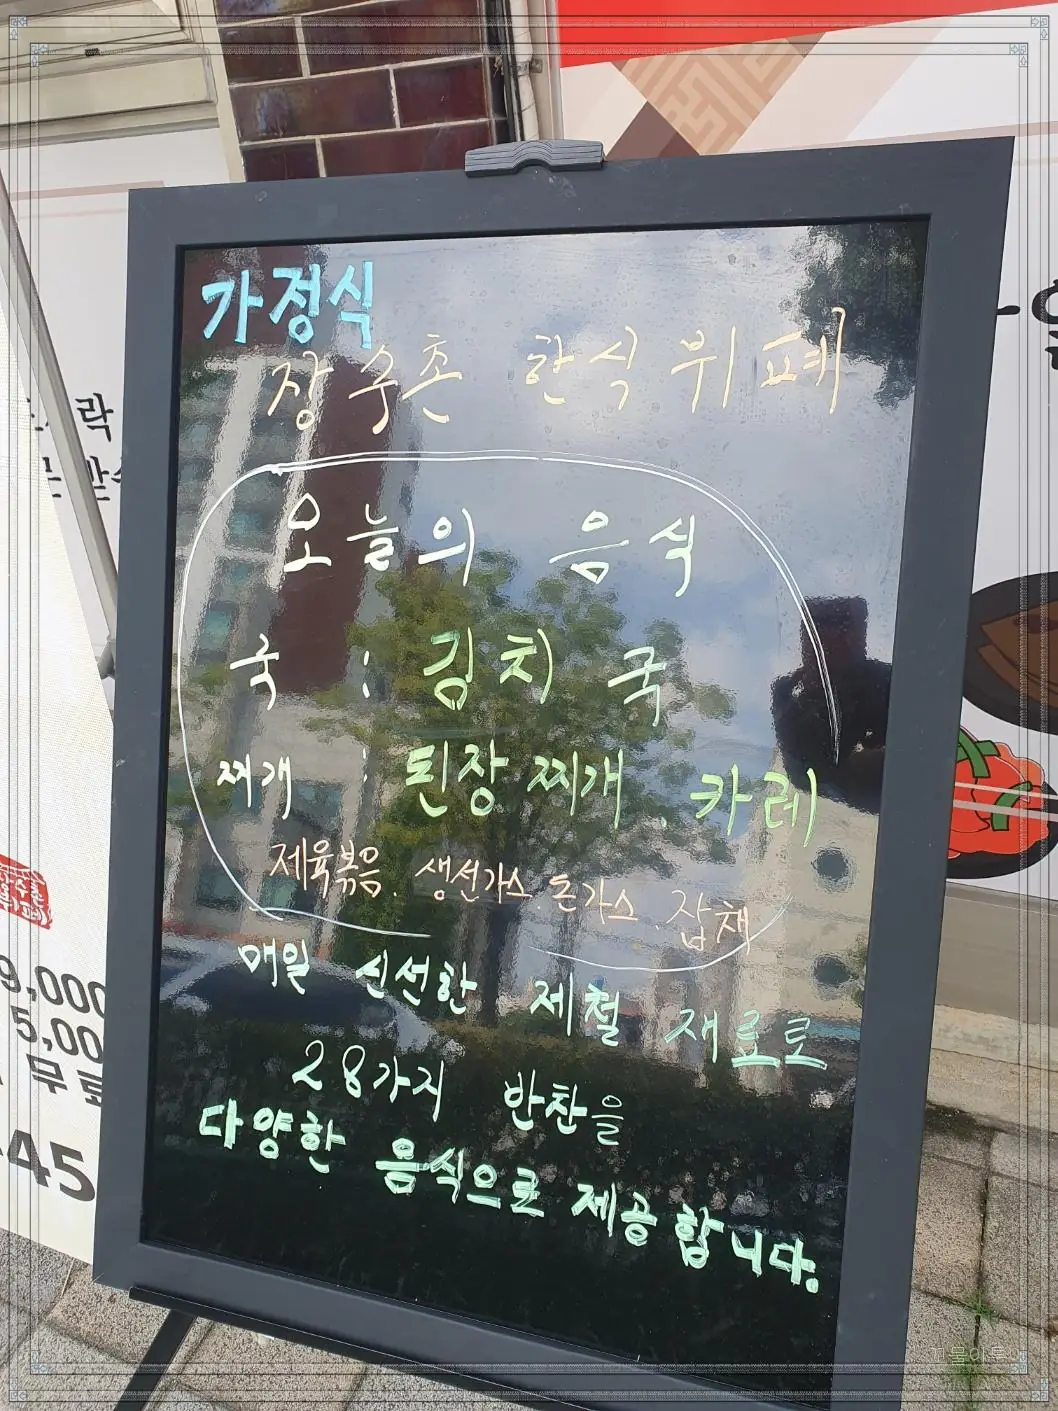 가정식
장수촌 한식 뷔페
오늘의 음식
국 : 김치 국
찌개 : 된장 찌개. 카레
제육볶음. 생선가스. 돈가스. 잡채
매일 신선한 제철 재료로
28가지 반찬을
다양한 음식으로 제공합니다.
락
9,000
5,00
무료
45